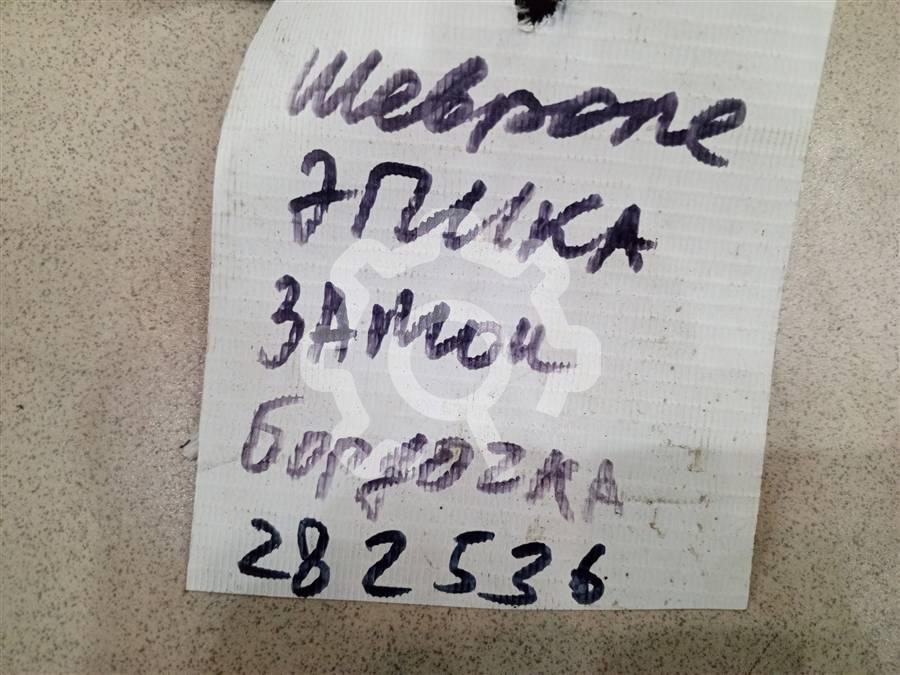 Шевроле
ЭПИКА
ЗАмок
бардачка
282536